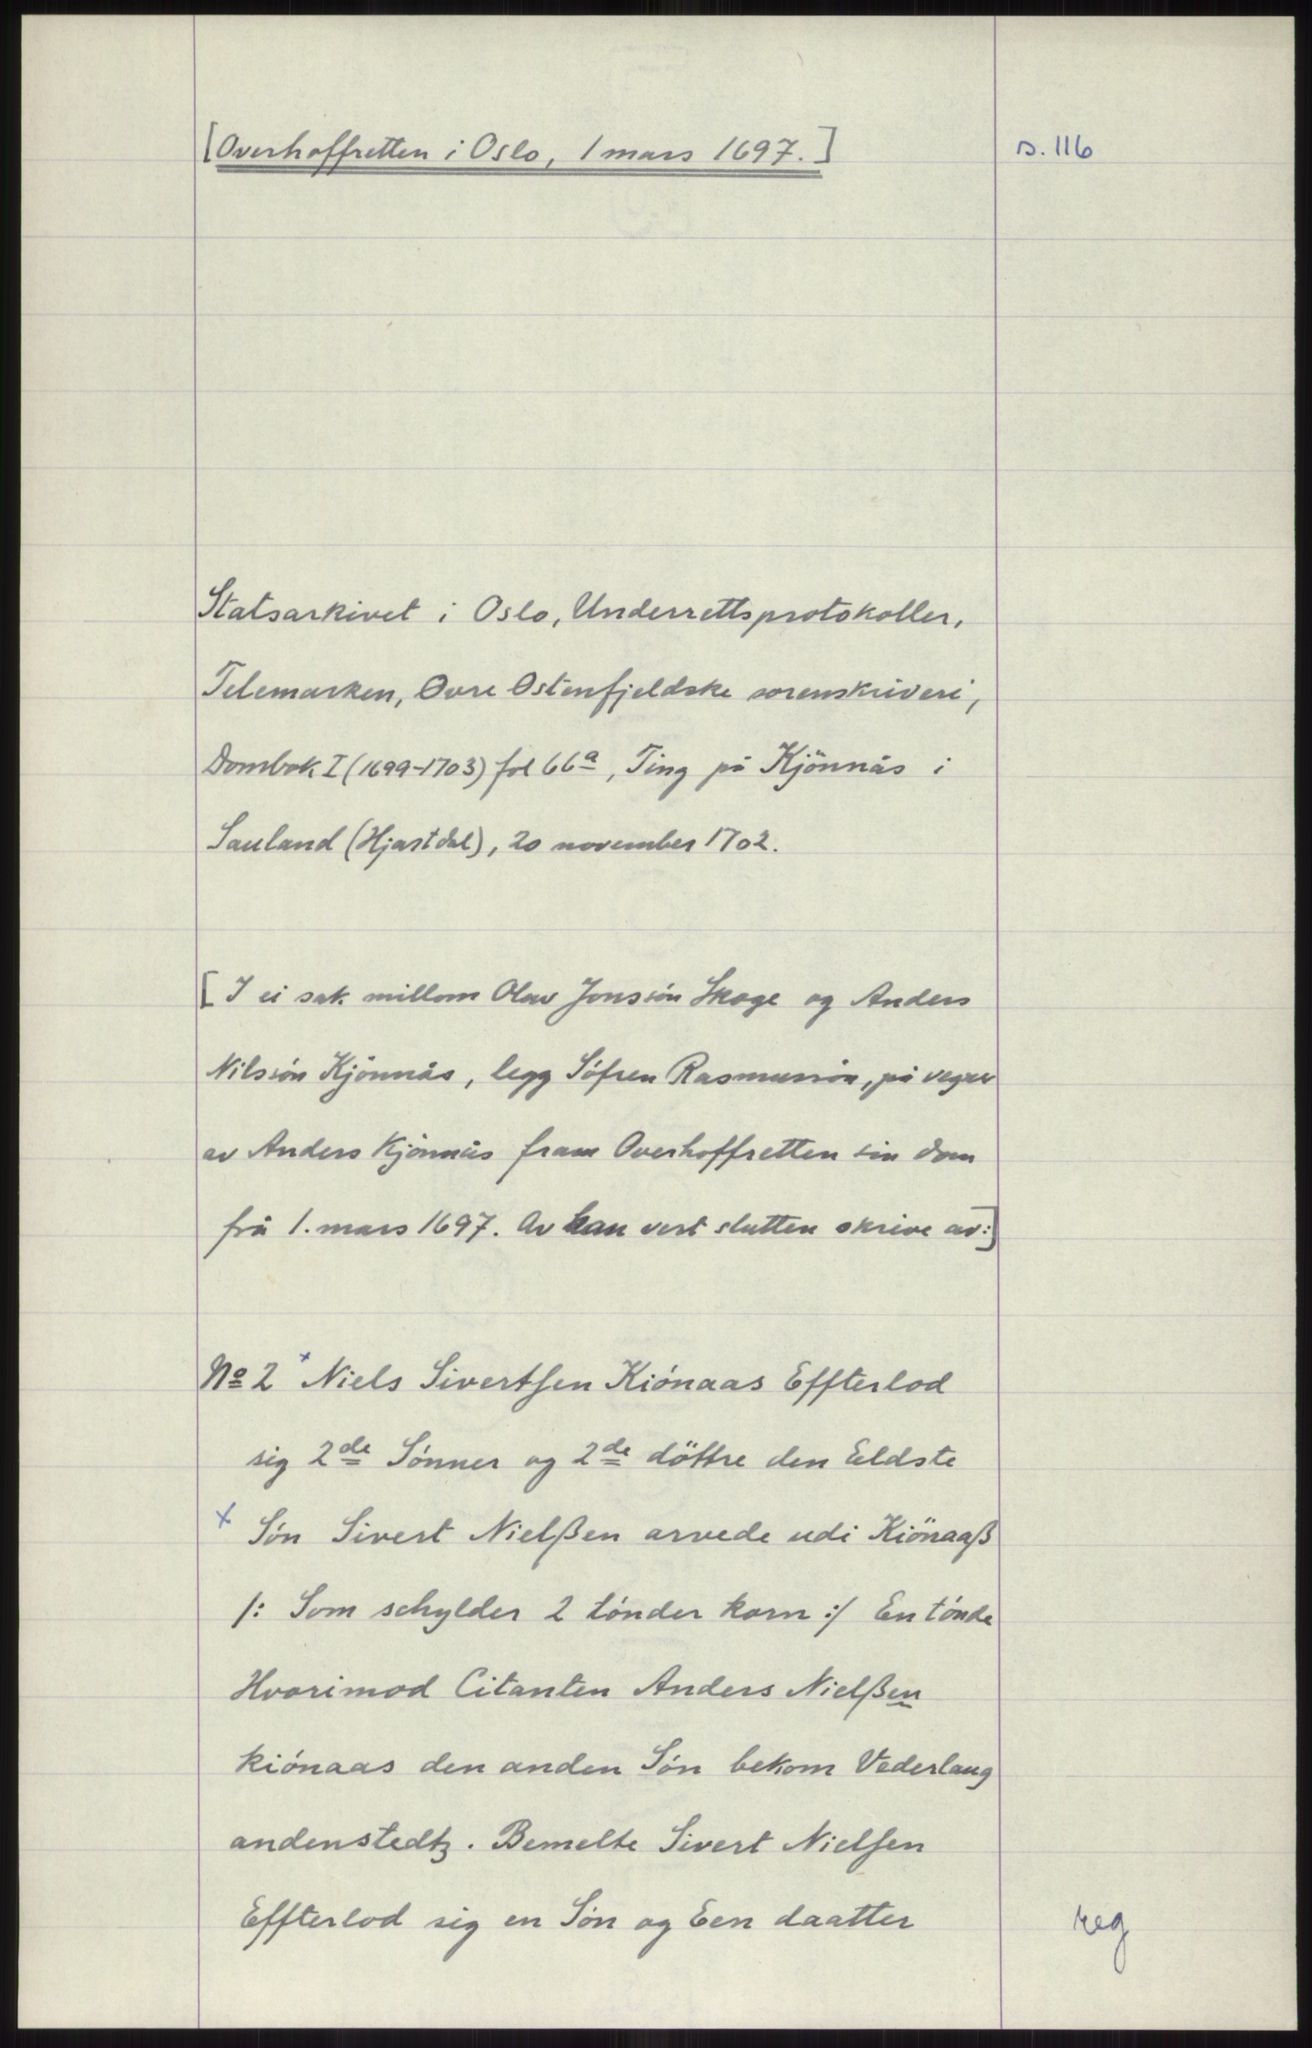 [Overhoffretten i Oslo, 1 mars 1697.]
s. 116
Statsarkivet i Oslo, Underrettsprotokoller,
Telemarken, Øvre Østenfjeldske sorenskriveri,
Dombok I (1699-1703) fol 66a, Ting på Kjönnås i
Sauland (Hjartdal), 20 november 1702.
[I ei sak millom Olav Jonssön Skoge og Anders
Nilssón Kjönnås, legg Sófren Rasmussón, på vegner
av Anders Kjönnås fram Overhoffretten sin dom
frå 1. mars 1697. Av han vert slutten skrive av:]
No 2 x Niels Sivertsen Kiónaas Effterlod
sig 2de Sónner og 2de döttre den Eeldste
x Són Sivert Nielßen arvede udi Kiönaaß
/: Som schylder 2 tónder korn :/ En tónde
Hvorimod Citanten Anders Nielßen
kiónaas den anden Són bekom Vederlaug
andenstedtz. Bemelte Sivert Nielsen
Effterlod sig en Són og Een daatter
reg